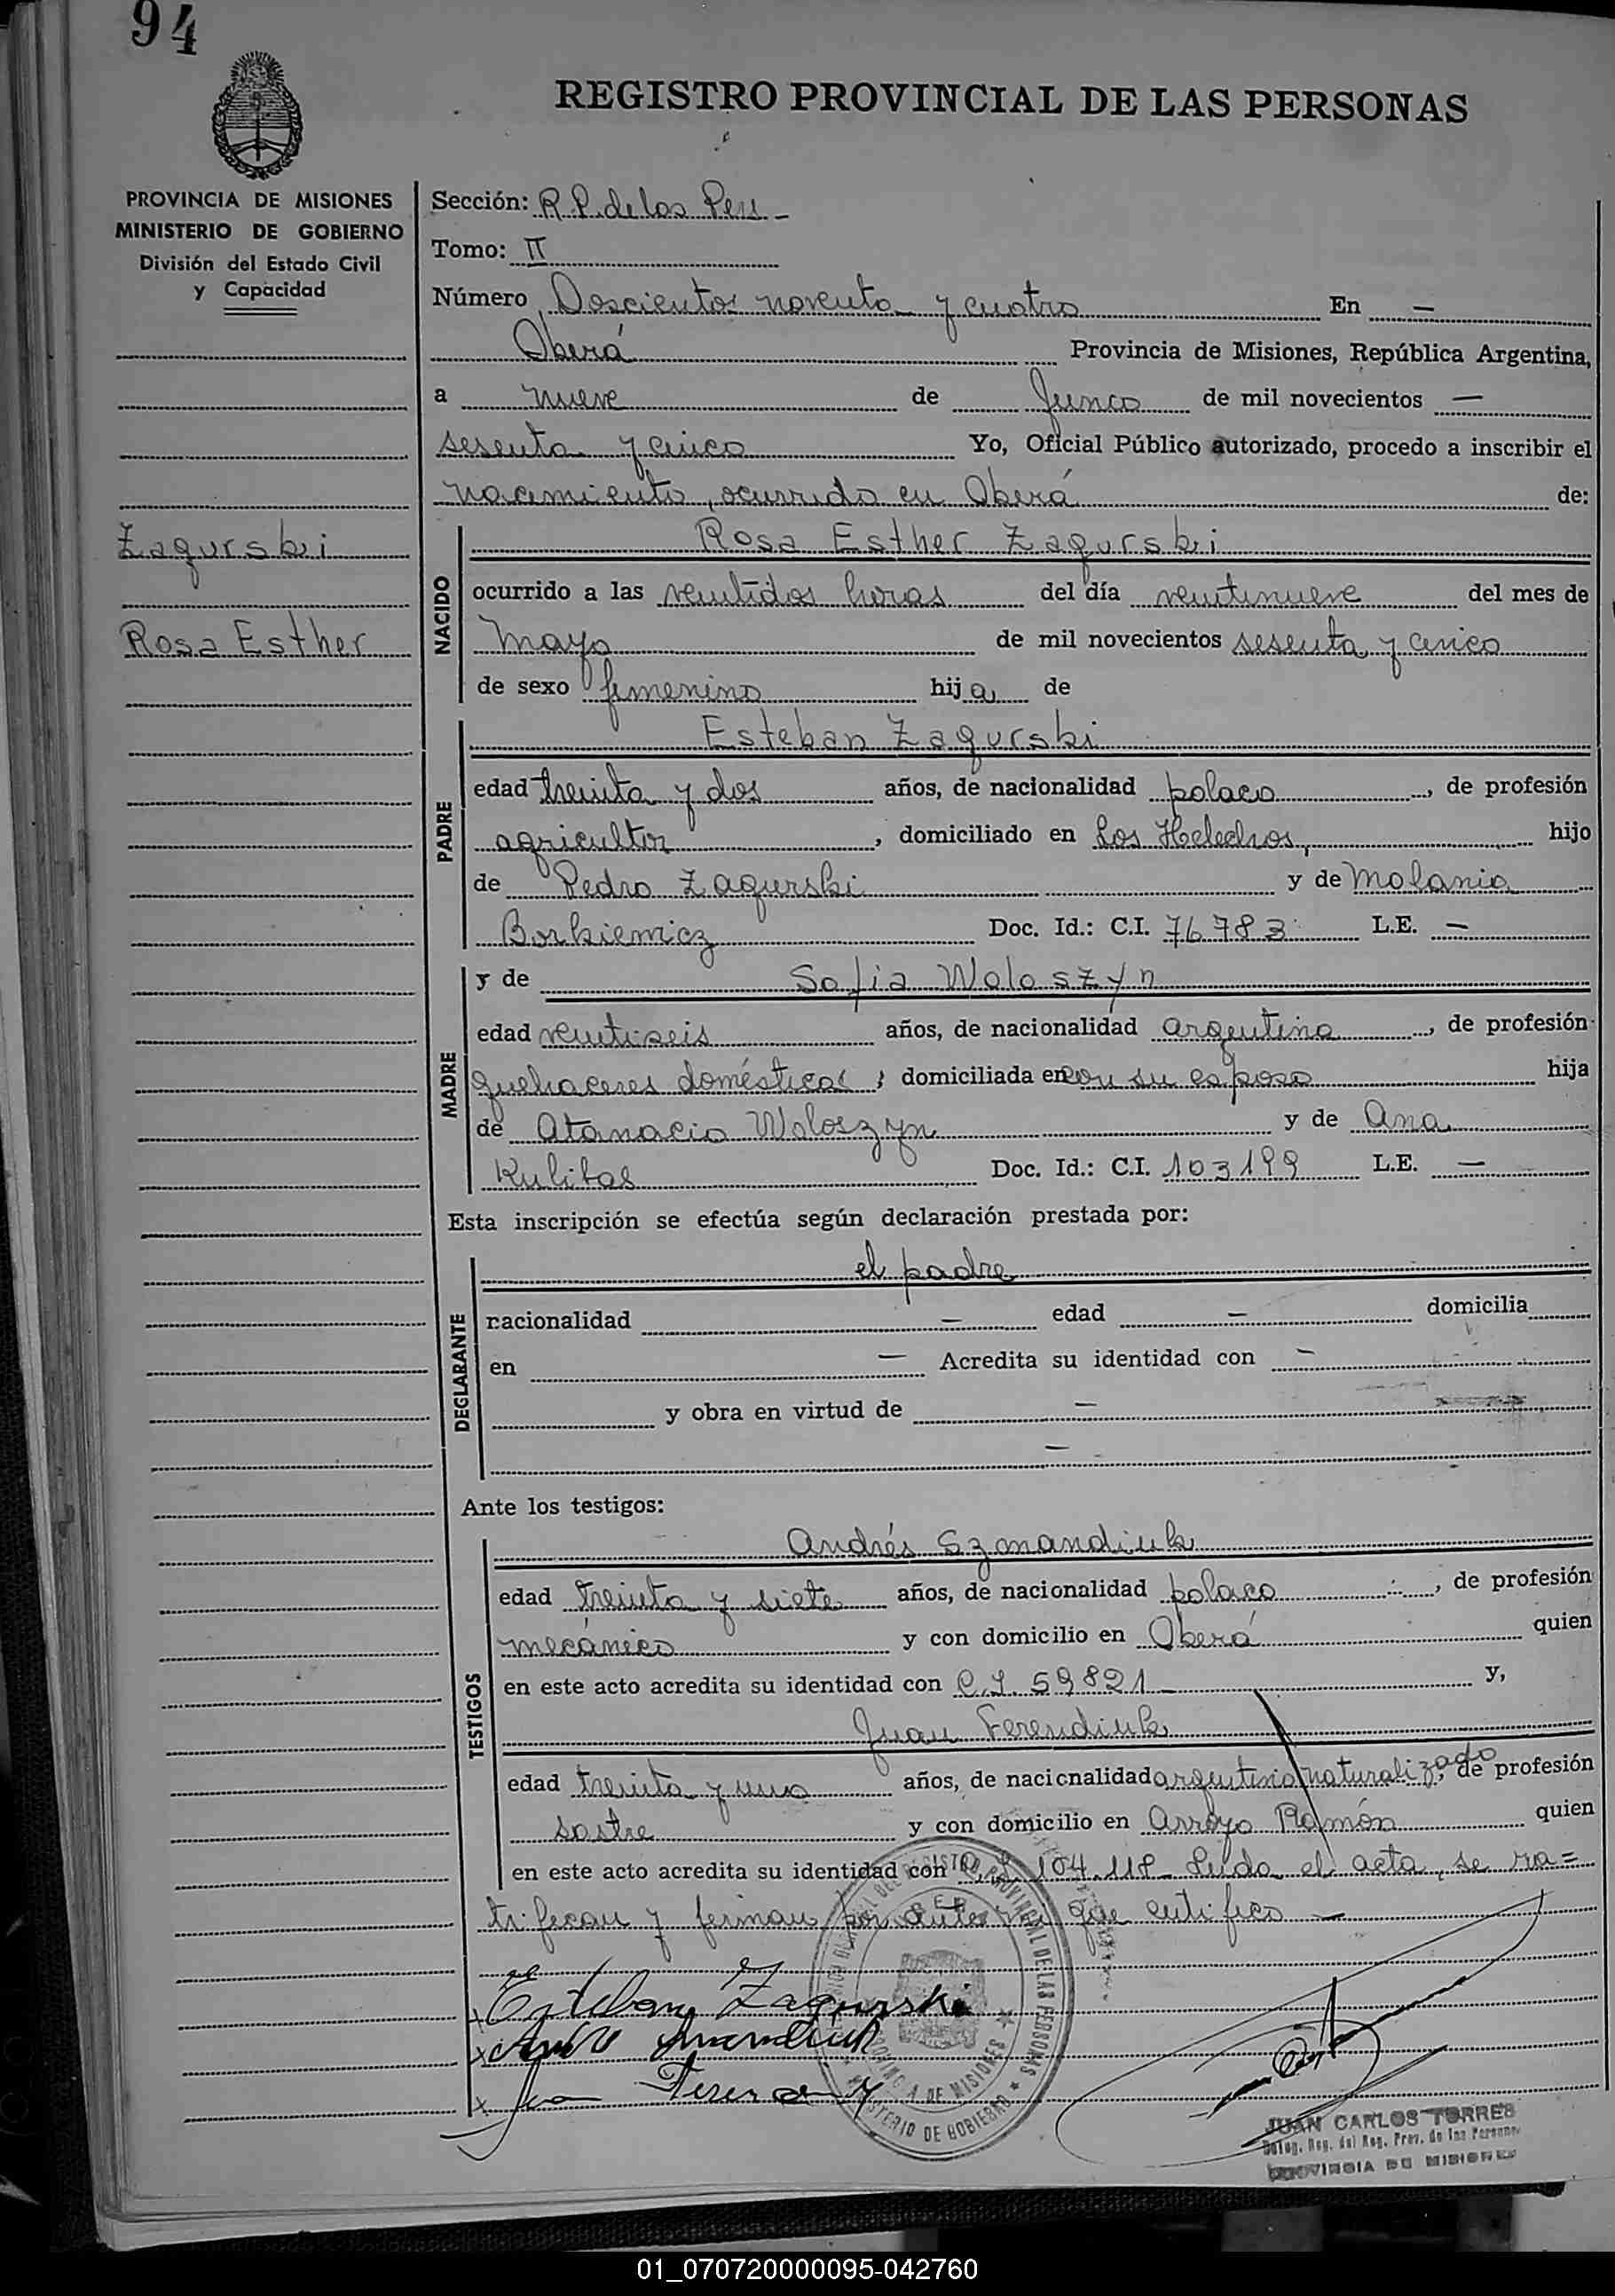 94
REGISTRO PROVINCIAL DE LAS PERSONAS
PROVINCIA DE MISIONES
MINISTERIO DE GOBIERNO
División del Estado Civil
y Capacidad
Zagurski
Rosa Esther
Sección: R.P. de las Pers -
Tomo: II
Número Doscientos noventa y cuatro En —
Oberá Provincia de Misiones, República Argentina,
a nueve de Junio de mil novecientos —
sesenta y cinco Yo, Oficial Público autorizado, procedo a inscribir el
nacimiento, ocurrido en Oberá de:
NACIDO
Rosa Esther Zagurski
ocurrido a las veintidos horas del día veintinueve del mes de
Mayo de mil novecientos sesenta y cinco
de sexo femenino hija de
PADRE
Esteban Zagurski
edad treinta y dos años, de nacionalidad polaco, de profesión
agricultor, domiciliado en Los Helechos, hijo
de Pedro Zagurski y de Molania
Borkiewicz Doc. Id.: C.I. 76783 L.E. —
MADRE
y de Sofia Woloszyn
edad veintiseis años, de nacionalidad argentina, de profesión
quehaceres domésticos, domiciliada en con su esposo hija
de Atanacio Woloszyn y de Ana
Kulibas Doc. Id.: C.I. 103199 L.E. —
Esta inscripción se efectúa según declaración prestada por:
DECLARANTE
el padre
nacionalidad — edad — domicilia
en — Acredita su identidad con —
y obra en virtud de —
—
Ante los testigos:
TESTIGOS
Andrés Szmandiuk
edad treinta y siete años, de nacionalidad polaco, de profesión
mecánico y con domicilio en Oberá quien
en este acto acredita su identidad con C.I. 59821 — y,
Juan Ferendiuk
edad treinta y uno años, de nacionalidad argentino naturalizado, de profesión
sastre y con domicilio en Arroyo Ramón quien
en este acto acredita su identidad con C.I. 104.118 Leída el acta, se ra=
tifican y firman por ante mi que certifico —
Esteban Zagurski
JUAN CARLOS TORRES
Deleg. Reg. del Reg. Prov. de las Personas
PROVINCIA DE MISIONES
01_070720000095-042760